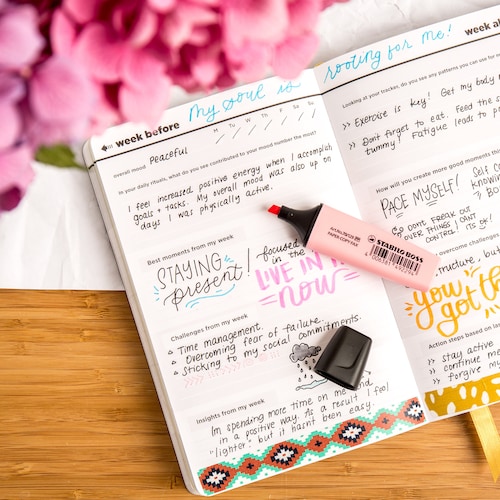 My soul is rooting for me!
week before
M Tu W Th F Sa Su
overall mood Peaceful
In your daily rituals, what do you see contributed to your mood number the most?
I feel increased positive energy when I accomplish
goals + tasks. My overall mood was also up on
days I was physically active.
Best moments from my week
STAYING present! focused
in the
LIVE IN
now
Challenges from my week
Time management.
Overcoming fear of failure.
Sticking to my social commitments.
Insights from my week
Im spending more time on me and
in a positive way. As a result I feel
"lighter" but it hasn't been easy.
week a
Looking at your tracker, do you see any patterns you can use for
>> Exercise is key! Get my body
>> Don't forget to eat. Feed the
tummy! Fatigue leads to
How will you create more good moments
PACE MYSELF!
DON'T FREAK OUT
OVER THINGS CAN'T
CONTROL! ITS OK!
challenges
structure, but
you got
Action steps based on
>> stay active
>> continue
>> forgive
STABILO BOSS
PAPER COPY FAX